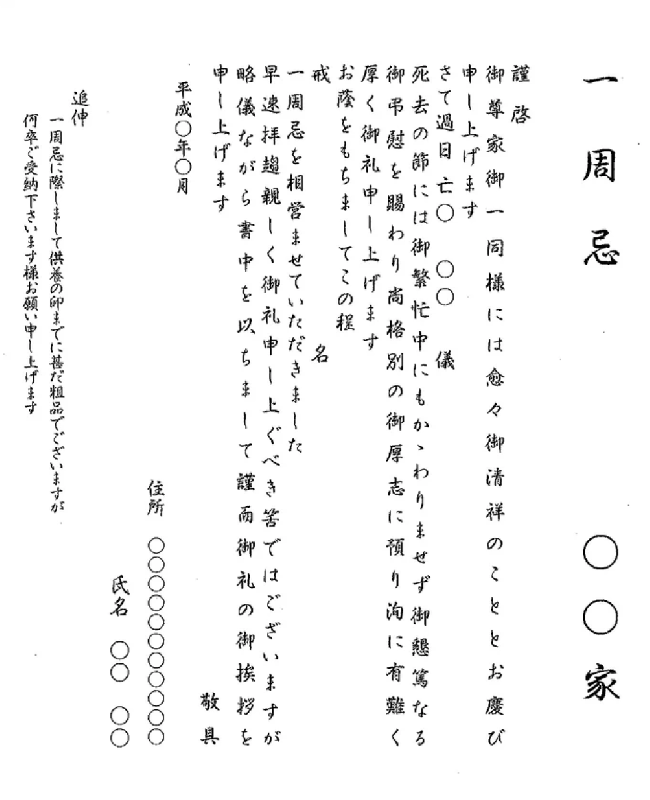 一周忌 〇〇家
謹啓
御尊家御一同様には愈々御清祥のこととお慶び
申し上げます
さて過日亡〇 〇〇 儀
死去の節には御繁忙中にもかゝわりませず御懇篤なる
御弔慰を賜わり尚格別の御厚志に預り洵に有難く
厚く御礼申し上げます
お蔭をもちましてこの程
戒 名
一周忌を相営ませていただきました
早速拝趨親しく御礼申し上ぐべき筈ではございますが
略儀ながら書中を以ちまして謹而御礼の御挨拶を
申し上げます
敬具
平成〇年〇月
住所 〇〇〇〇〇〇〇〇〇〇
氏名 〇〇 〇〇
追伸
一周忌に際しまして供養の印までに甚だ粗品でございますが
何卒ご受納下さいます様お願い申し上げます